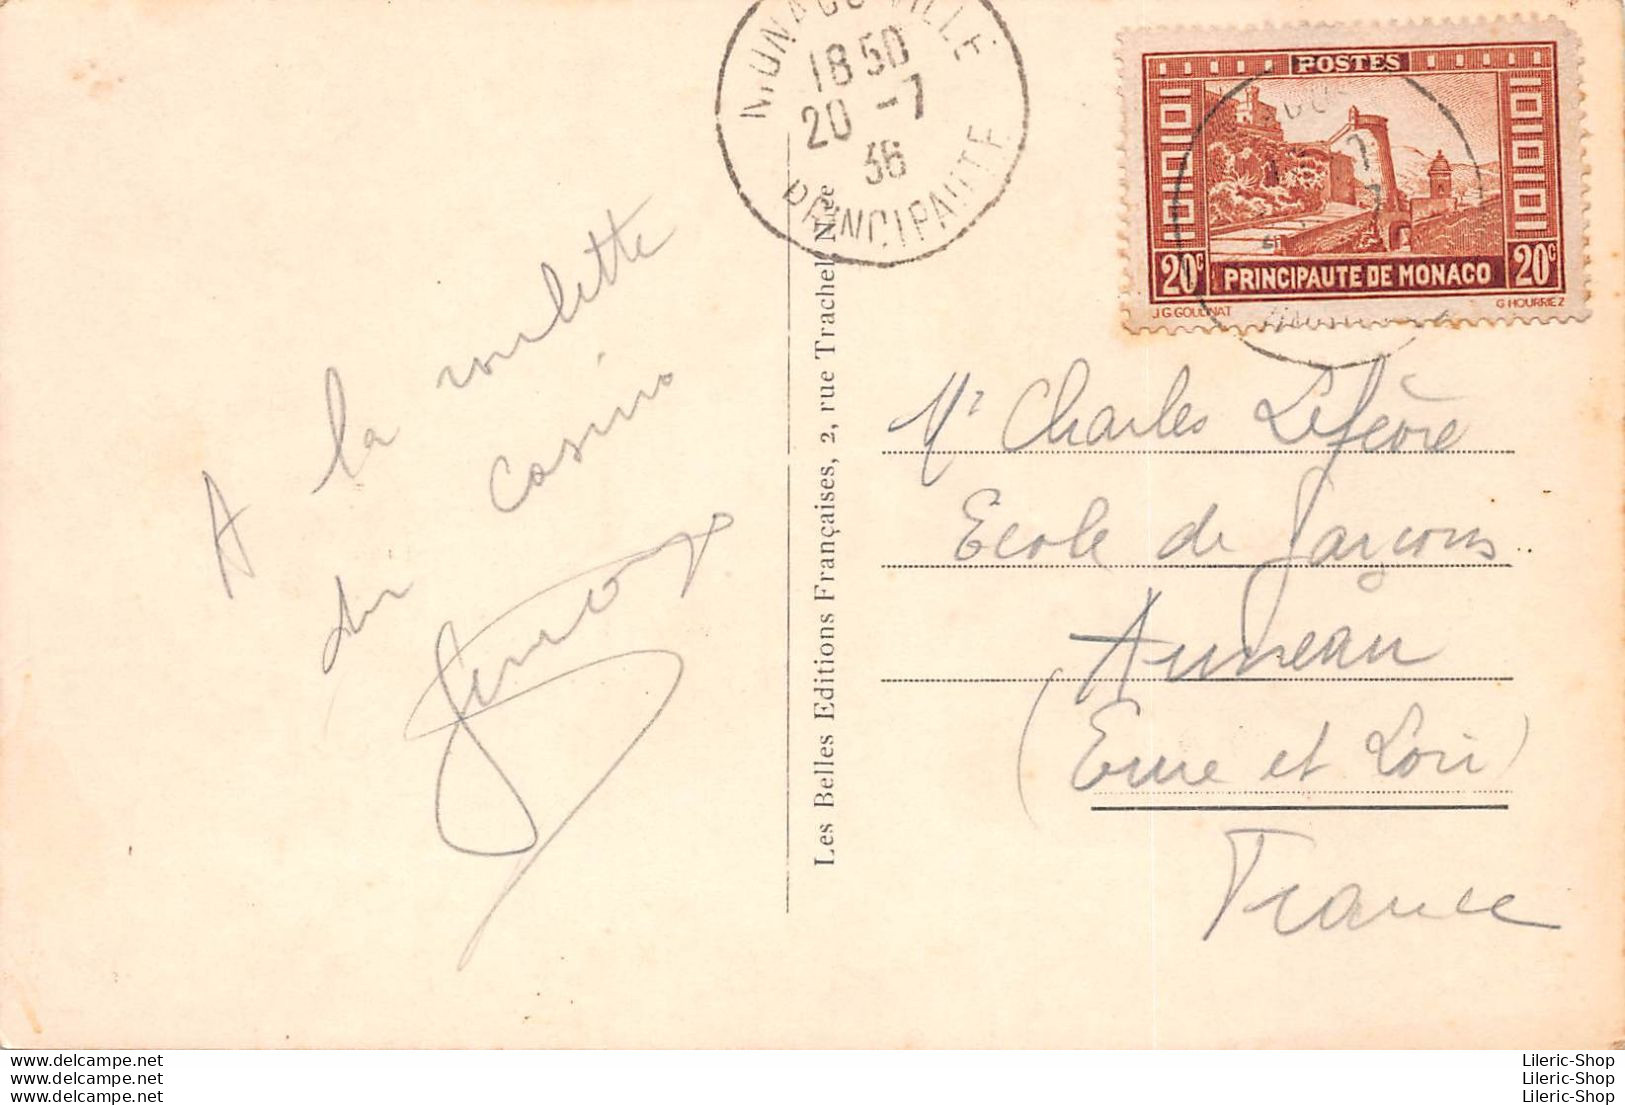 MONACO-VILLE
1850
20 -7
36
PRINCIPAUTE
POSTES
20c PRINCIPAUTE DE MONACO 20c
J.G GOULINAT G HOURRIEZ
A la roulette
du casino
Les Belles Editions Françaises, 2, rue Trachel Nice
Mr Charles Lefèvre
Ecole de Garçons
Auneau
(Eure et Loir)
France
www.delcampe.net
www.delcampe.net
www.delcampe.net
Lileric-Shop
Lileric-Shop
Lileric-Shop